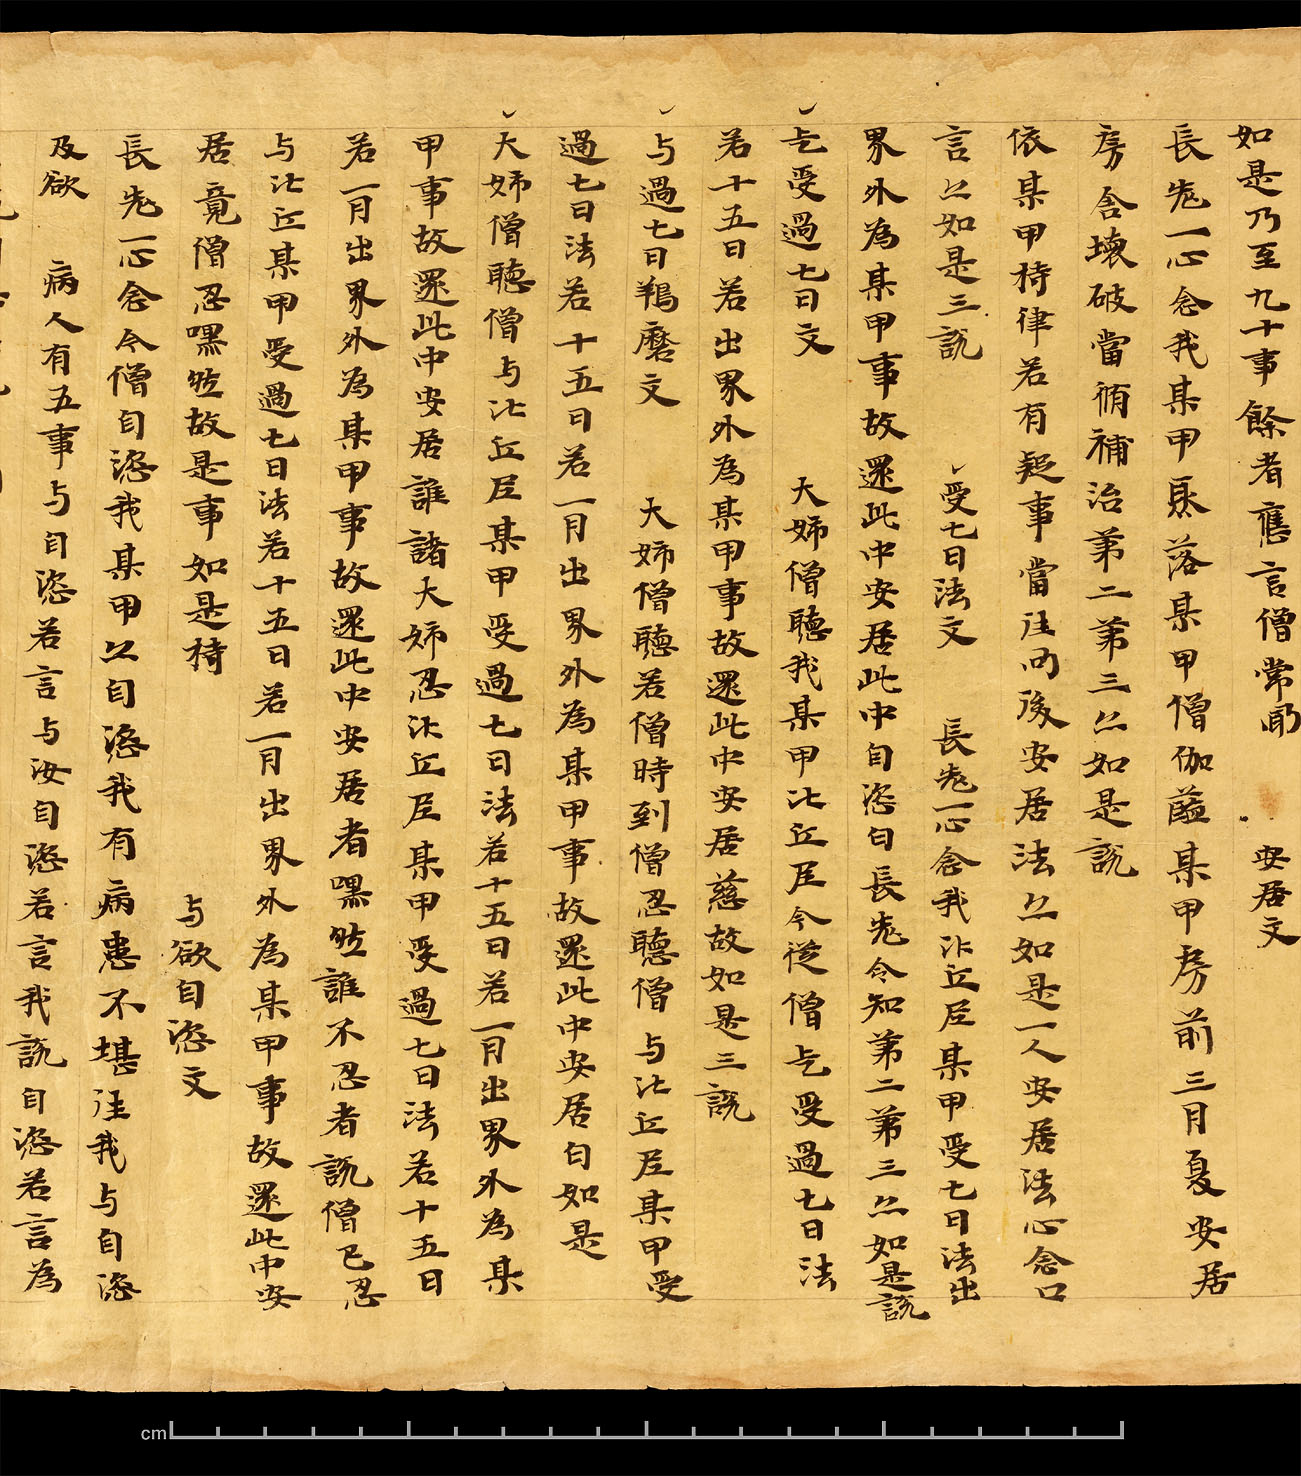 如是乃至九十事餘者應言僧常聞 安居文
長老一心念我某甲聚落某甲僧伽藍某甲房前三月夏安居
房舍壞破當脩補治第二第三亦如是說
依某甲持律若有疑事當往問後安居法亦如是一人安居法心念口
言亦如是三說 受七日法文 長老一心念我比丘尼某甲受七日法出
界外為某甲事故還此中安居此中自恣白長老令知第二第三亦如是說
乞受過七日文 大姉僧聽我某甲比丘尼今從僧乞受過七日法
若十五日若出界外為某甲事故還此中安居慈故如是三說
与過七日羯磨文 大姉僧聽若僧時到僧忍聽僧与比丘尼某甲受
過七日法若十五日若一月出界外為某甲事故還此中安居白如是
大姉僧聽僧与比丘尼某甲受過七日法若十五日若一月出界外為某
甲事故還此中安居誰諸大姉忍比丘尼某甲受過七日法若十五日
若一月出界外為某甲事故還此中安居者嘿然誰不忍者說僧已忍
与比丘某甲受過七日法若十五日若一月出界外為某甲事故還此中安
居竟僧忍嘿然故是事如是持 与欲自恣文
長老一心念今僧自恣我某甲亦自恣我有病患不堪往我与自恣
及欲 病人有五事与自恣若言与汝自恣若言我說自恣若言為